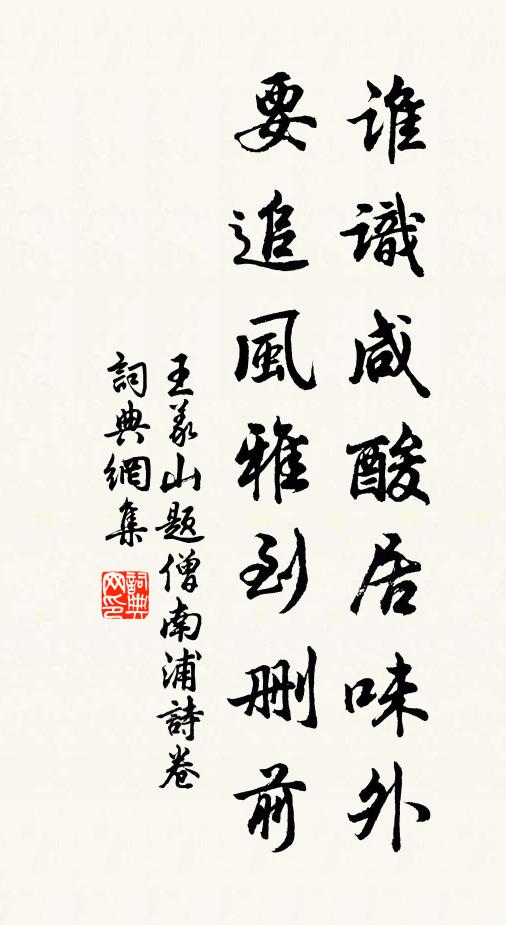 谁識咸酸居味外
要追風雅到删前
王义山题僧南浦詩卷
詞典網集
詞典网印